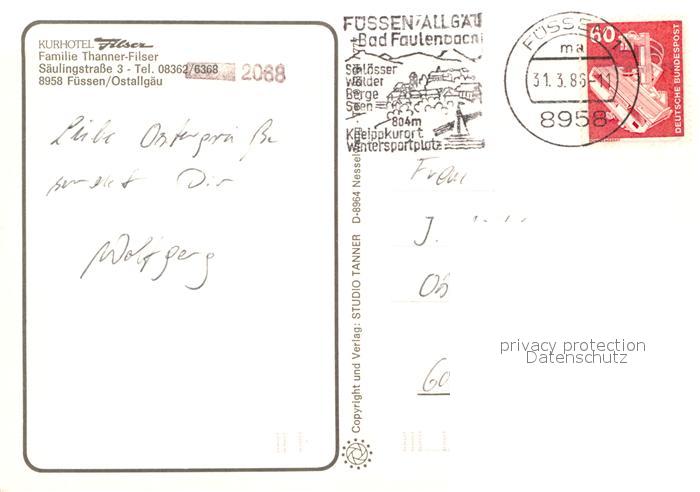 KURHOTEL Filser
Familie Thanner-Filser
Säulingstraße 3 - Tel. 08362/6368 2068
8958 Füssen/Ostallgäu
Liebe Ostergrüße
sendet Dir
Wolfgang
FÜSSEN/ALLGÄU
Bad Faulenbach
Schlösser
Wälder
Berge
Seen
804m
Kneippkurort
Wintersportplatz
FÜSSEN 1
ma
31.3.86-11
8958
60
DEUTSCHE BUNDESPOST
Copyright und Verlag: STUDIO TANNER D-8964 Nessel
Frau
J.
60
privacy protection
Datenschutz